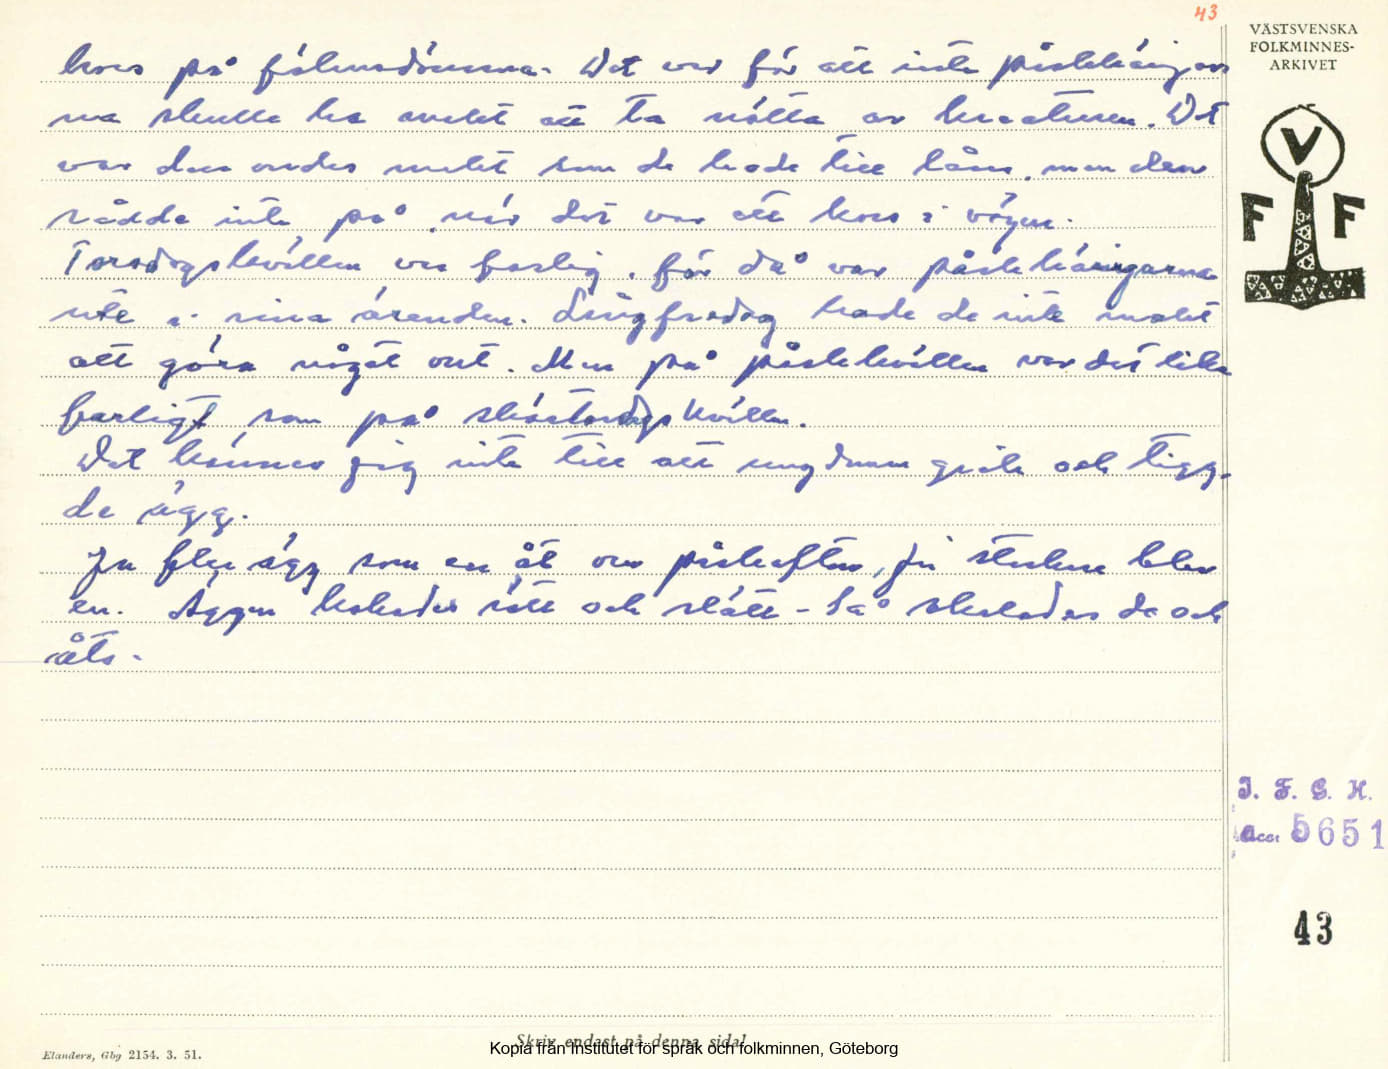 43
VÄSTSVENSKA
FOLKMINNES-
ARKIVET
kors på fähusdörrarna. Det var för att inte påskkäringar
na skulle ha makt att ta nötta av kreaturen. Det
var den ondes makt som de hade till låns, men den
rådde inte på, när det var ett kors i vägen.
Torsdagskvällen var farlig, för då var påskkäringarna
ute i sina ärenden. Långfredag hade de inte makt
att göra något ont. Men på påskkvällen var det lika
farligt som på skärtorsdagskvällen.
Det hände sig inte till att ungdmar gick och tigg-
de ägg.
Ju fler ägg som en åt om påskafton, ju starkare blev
en. Äggen kokades rätt och slätt - Så skalades de och
åts.
V
F F
I. F. G. H.
Acc: 5651
43
Skriv endast på denna sida!
Kopia från Institutet för språk och folkminnen, Göteborg
Elanders, Gbg 2154. 3. 51.